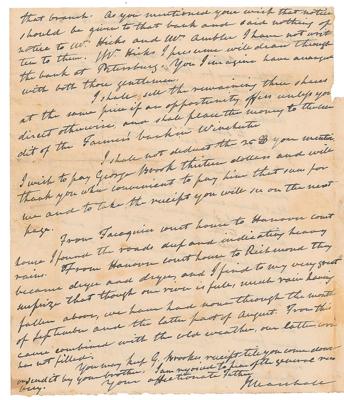 that branch. As you mentioned your wish that notice
should be given to that bank and said nothing of
notice to Mr Hicks and Mr Ambler I have not writ
ten to them. Mr Hicks I presume will draw through
the bank at Petersburg. You I imagine have arranged
with both those gentlemen.
I shall sell the remaining three shares
at the same price if an opportunity offers unless you
direct otherwise, and shall place the money to the cre
dit of the Farmers bank in Winchester
I shall not deduct the 25$ you
I wish to pay George Brook thirteen dollars and will
thank you when convenient to pay him that sum for
me and to take the receipt you will see on the next
page.
From Fauquier court house to Hanover court
house I found the roads deep and indicating heavy
rains. From Hanover court house to Richmond they
became dryer and dryer, and I find to my very great
surprize that though our river is full, much rain having
fallen above, we have had none through the month
of September and the latter part of August. From this
cause combined with the cold weather, our latter corn
has not filled.
You may keep G. Brooks receipt till you come down
or send it by your brother. I am rejoiced to hear of the general reco
very.
Your affectionate Father
J Marshall